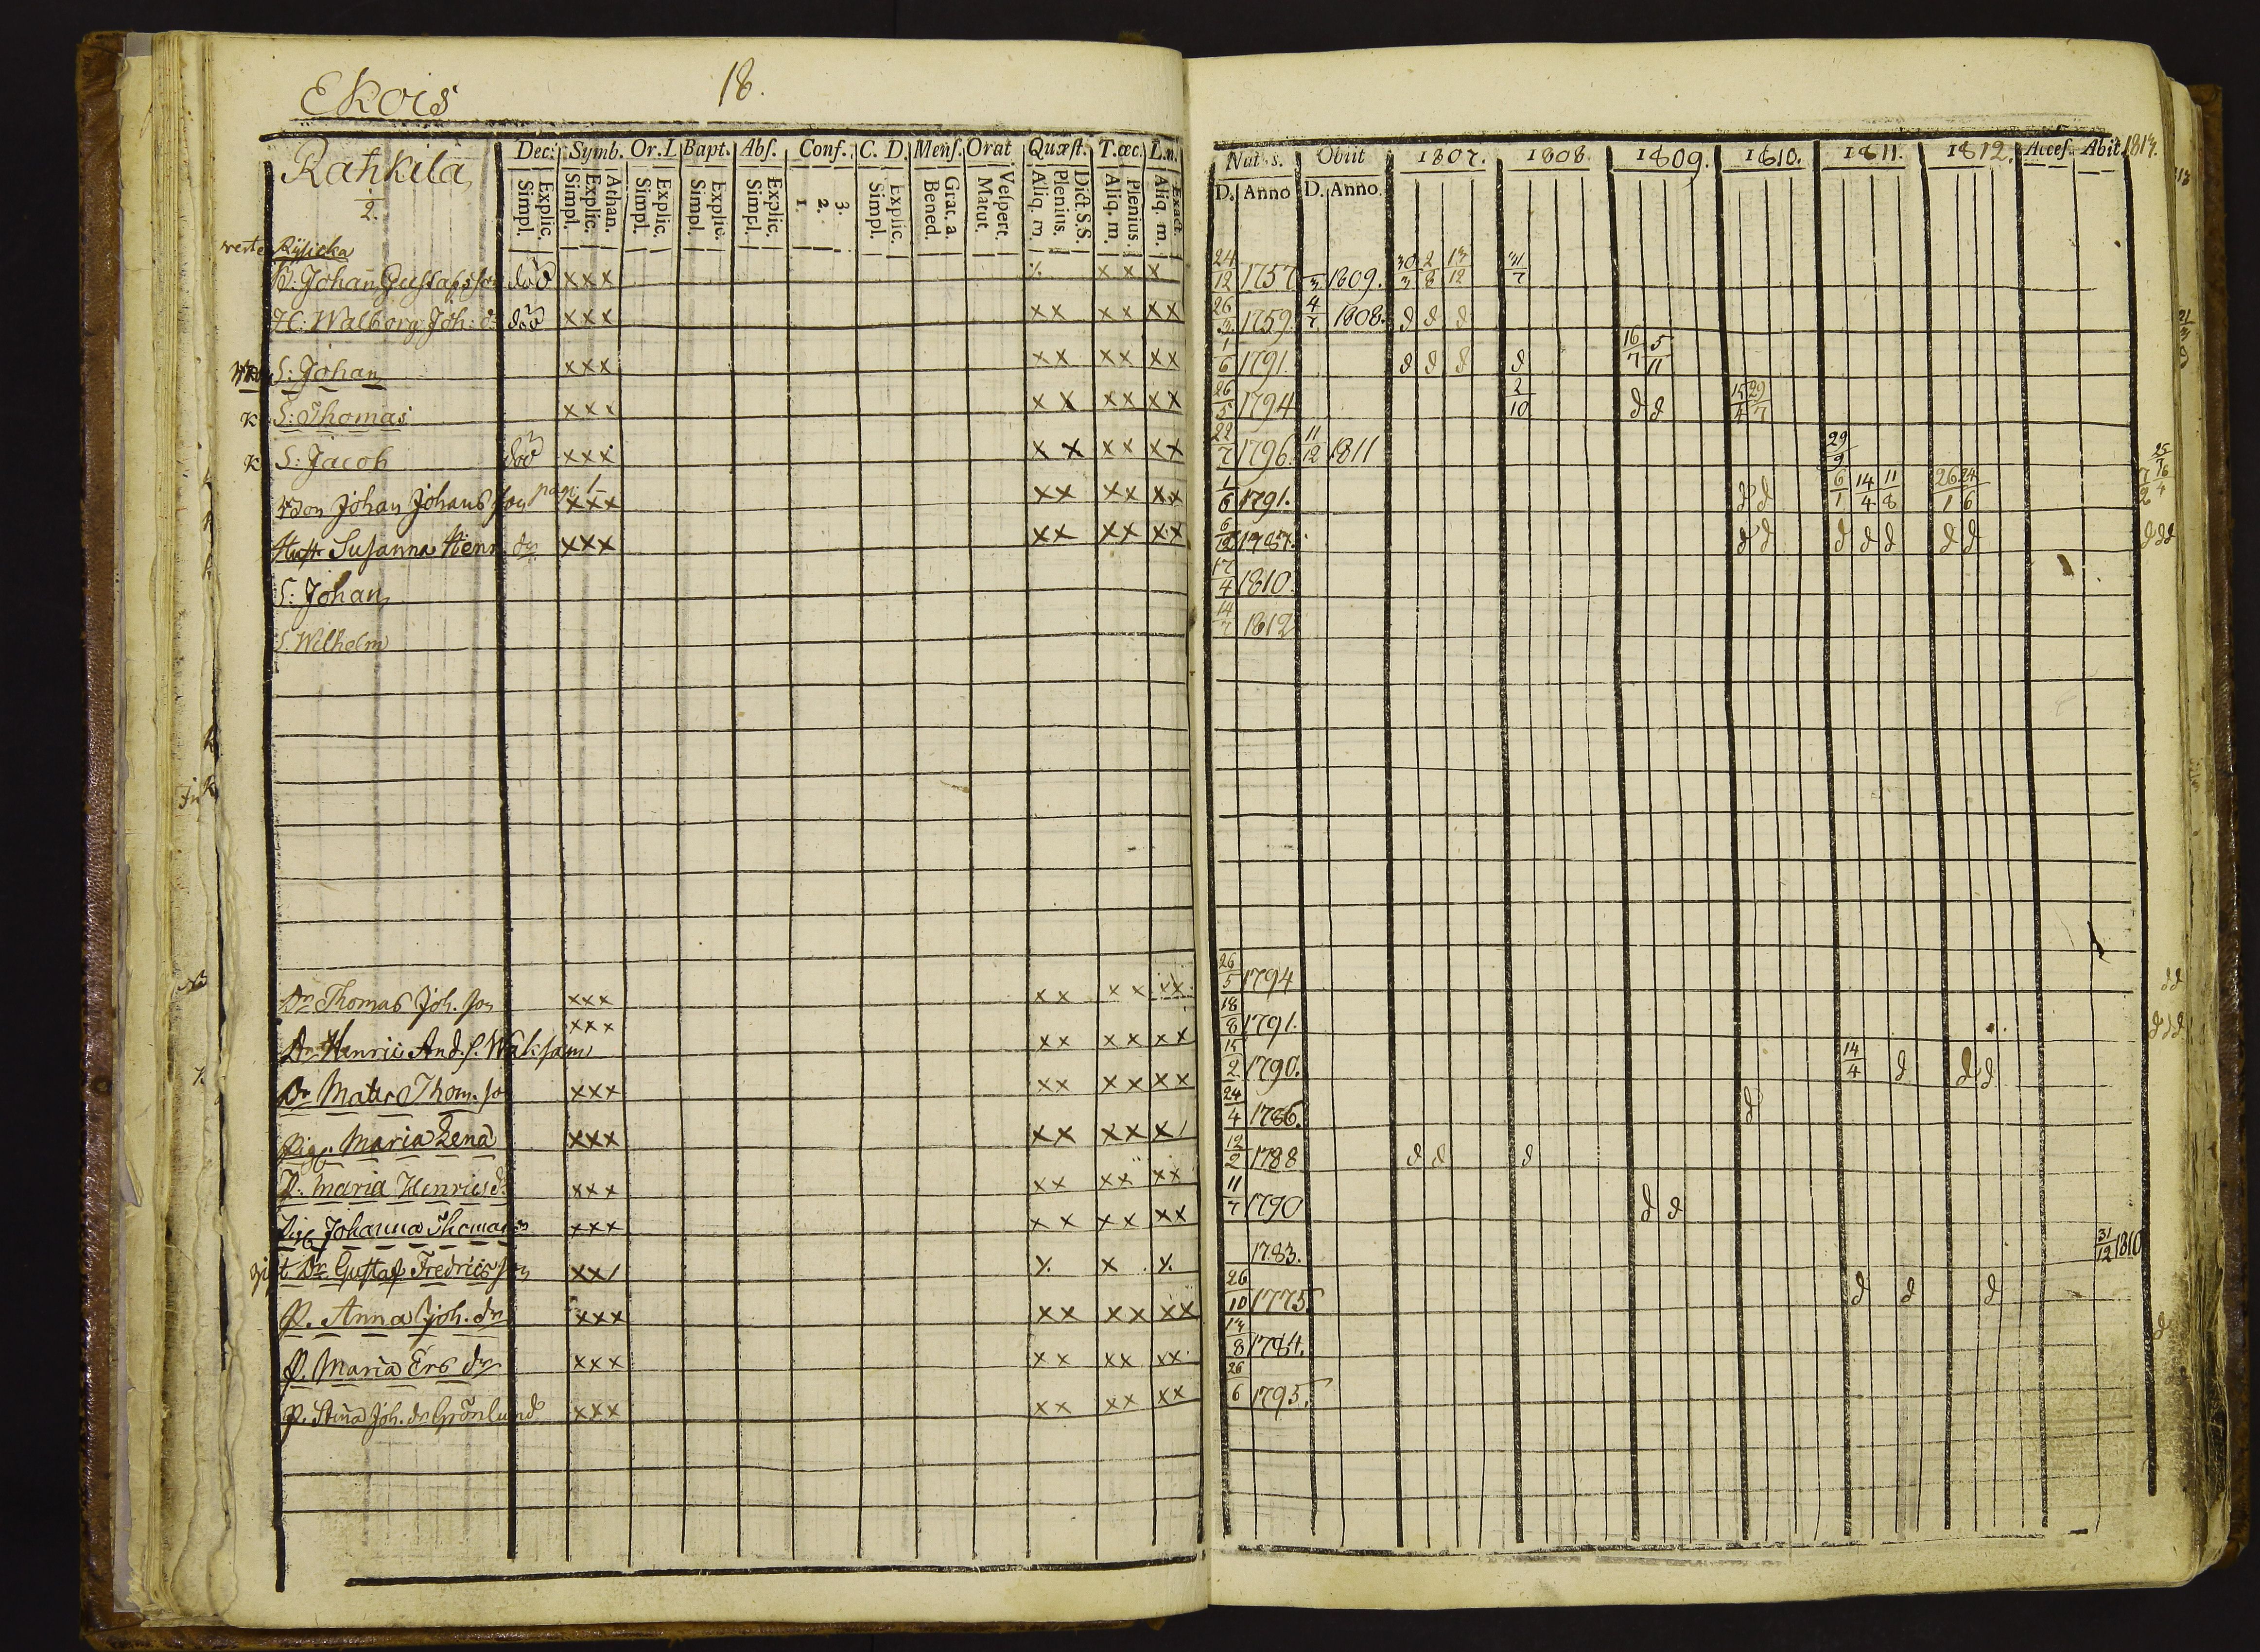 Ekois 18.
Rahkila
2.
Dec: Symb. Or.I. Bapt. Abſ. Conſ. C. D. Menſ. Orat Quæſt. T.œc. L.n.
Simpl. Explic. Simpl. Explic. Athan. Simpl. Explic. Simpl. Explic. Simpl. Explic. 1. 2. 3. Simpl. Explic. Bened. Grat. a. Matut. Veſpert. Aliq. m. Plenius. Dict. S.S. Aliq. m. Plenius. Aliq. m. Exact.
Obiit 1807. 1808 1809. 1810. 1811. 1812. Acceſ. Abit. 1813.
D. Anno D. Anno.
B: Johan Gustafsson död xxx x x x 24/12 1757 1809. 30/3 2/8 13/12 31/7
H: Walborg Joh: dr död xxx xx xx xx 26/3 1759 4/7 1808. d d d
S: Johan xxx xx xx xx 1/6 1791. d d d d 16/7 5/11
K S: Thomas xxx x x xx xx 26/5 1794 2/10 d d 15/4 29/7
K S: Jacob död xxx x x xx xx 22/7 1796. 11/12 1811 29/9
Johan Johansson pag: 1 xxx xx xx xx 1/6 1791. d d 6/1 14/4 11/8 26/1 24/6
Susanna Henr. dr xxx xx xx xx 6/12 1787. d d d d d d d d d d
S: Johan 17/4 1810.
S. Wilhelm 14/7 1812
Dr Thomas Joh. son xxx xx xx xx 26/5 1794 d d
Dr Henric And. s. xxx xx xx xx 18/8 1791. d d d
Dr Mats Thom. so xxx xx xx xx 15/2 1790. 14/4 d d d
Pig. Maria Lena xxx xx xx x 24/4 1786. d
P. Maria Henricsdr xxx xx xx xx 12/2 1788 d d d
Pig Johanna Thomas xxx xx xx xx 11/7 1790 d d
gift Dr Gustaf Fredricsson xx x x x 1783. 31/12 1810
P. Anna Joh. dr xxx xx xx xx 26/10 1775 d d d
P. Maria Ers dr xxx xx xx xx 13/8 1784. d
P. Stina Joh. dr Grönlund xxx xx xx xx 26/6 1795.